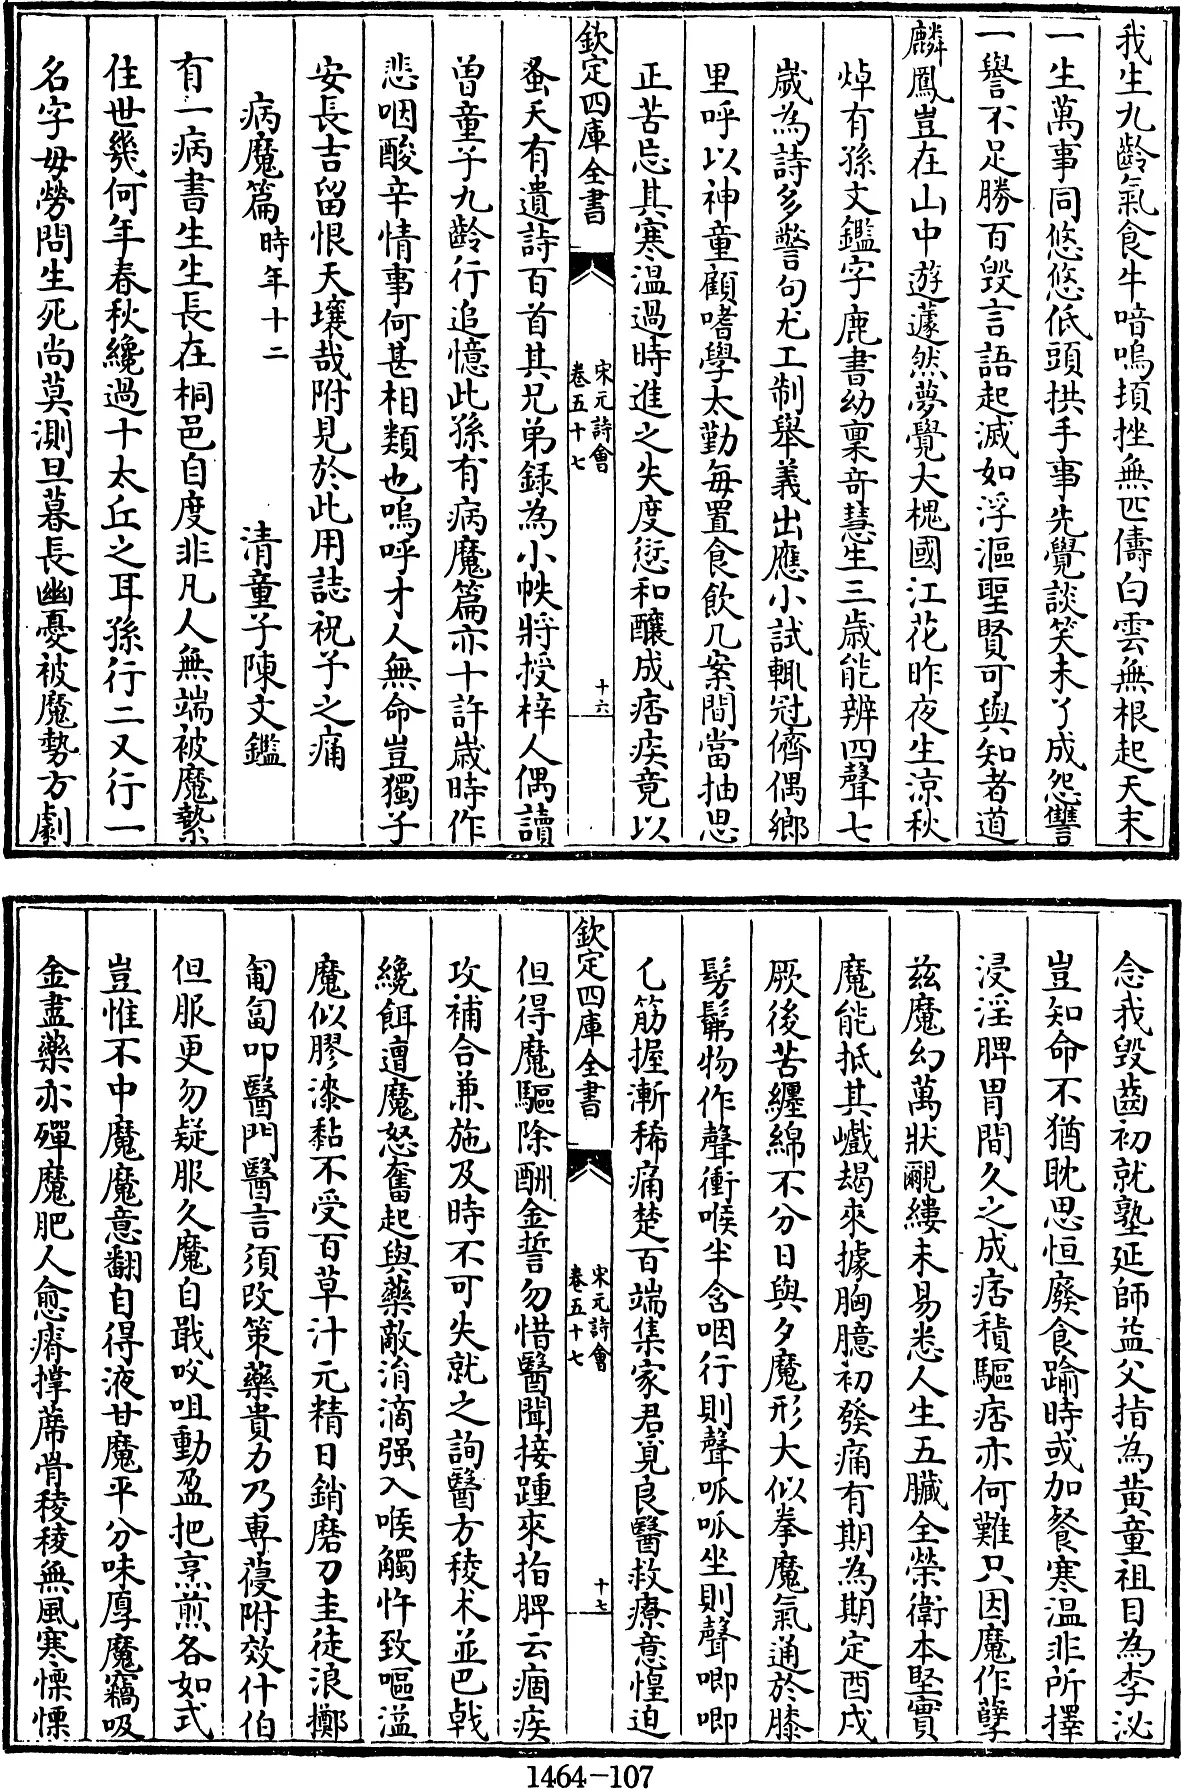 我生九齡氣食牛喑嗚頓挫無匹儔白雲無根起天末
一生萬事同悠悠低頭拱手事先覺談笑未了成怨讐
一譽不足勝百毀言語起滅如浮漚聖賢可與知者道
麟鳳豈在山中遊蘧然夢覺大槐國江花昨夜生涼秋
焯有孫文鑑字鹿書幼稟奇慧生三歲能辨四聲七
歲為詩多警句尤工制舉義出應小試輒冠儕偶鄉
里呼以神童顧嗜學太勤每置食飲几案間當抽思
正苦忘其寒温過時進之失度愆和釀成痞疾竟以
欽定四庫全書
宋元詩會
卷五十七
十六
蚤夭有遺詩百首其兄弟錄為小帙將授梓人偶讀
曽童子九齡行追憶此孫有病魔篇亦十許歲時作
悲咽酸辛情事何甚相類也嗚呼才人無命豈獨子
安長吉留恨天壤哉附見於此用誌祝予之痛
病魔篇時年十二
清童子陳文鑑
有一病書生生長在桐邑自度非凡人無端被魔縶
住世幾何年春秋纔過十太丘之耳孫行二又行一
名字毋勞問生死尚莫測旦暮長幽憂被魔勢方劇
念我毀齒初就塾延師益父指為黄童祖目為李泌
豈知命不猶耽思恒廢食踰時或加餐寒温非所擇
浸淫脾胃間久之成痞積驅痞亦何難只因魔作孽
兹魔幻萬狀覼縷未易悉人生五臟全榮衛本堅實
魔能抵其巇朅來據胸臆初發痛有期為期定酉戌
厥後苦纏綿不分日與夕魔形大似拳魔氣通於膝
髣髴物作聲衝喉半含咽行則聲呱呱坐則聲唧唧
匕筋握漸稀痛楚百端集家君覓良醫救療意惶迫
欽定四庫全書
宋元詩會
卷五十七
十七
但得魔驅除酬金誓勿惜醫聞接踵來指脾云痼疾
攻補合兼施及時不可失就之詢醫方稜术並巴戟
纔餌遭魔怒奮起與藥敵涓滴强入喉觸忤致嘔溢
魔似膠漆黏不受百草汁元精日銷磨刀圭徒浪擲
匍匐叩醫門醫言須改策藥貴力乃專葠附效什伯
但服更勿疑服久魔自戢㕮咀動盈把烹煎各如式
豈惟不中魔魔意翻自得液甘魔平分味厚魔竊吸
金盡藥亦殫魔肥人愈瘠撑蓆骨稜稜無風寒慄慄
1464-107